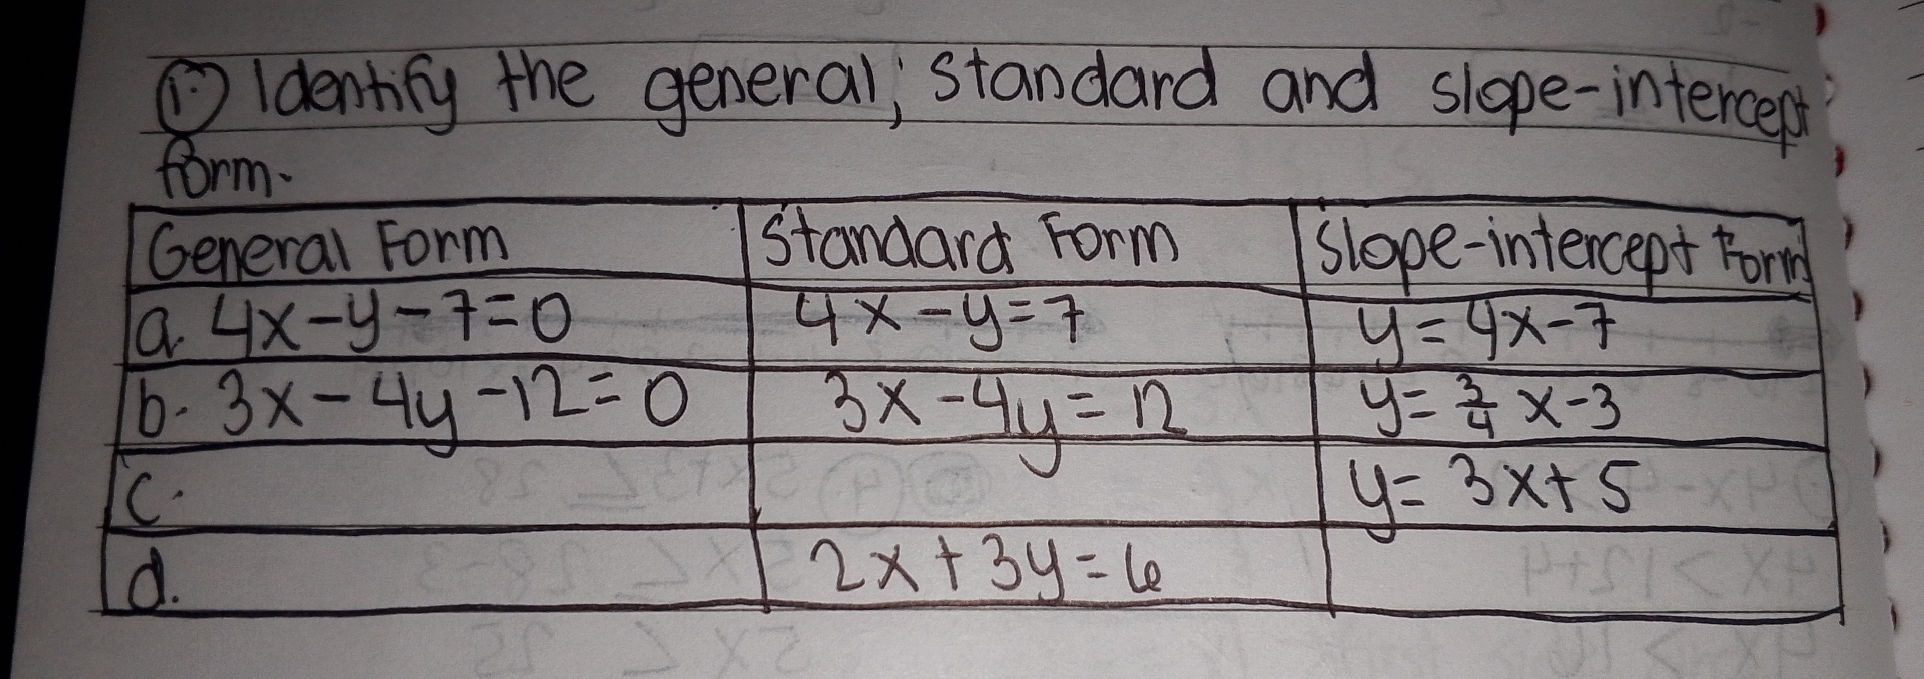 1. Identify the general, standard and slope-intercept
form.
General Form Standard Form Slope-intercept Form
a. 4x-y-7=0 4x-y=7 y=4x-7
b. 3x-4y-12=0 3x-4y=12 y=3/4 x-3
c. y=3x+5
d. 2x+3y=6